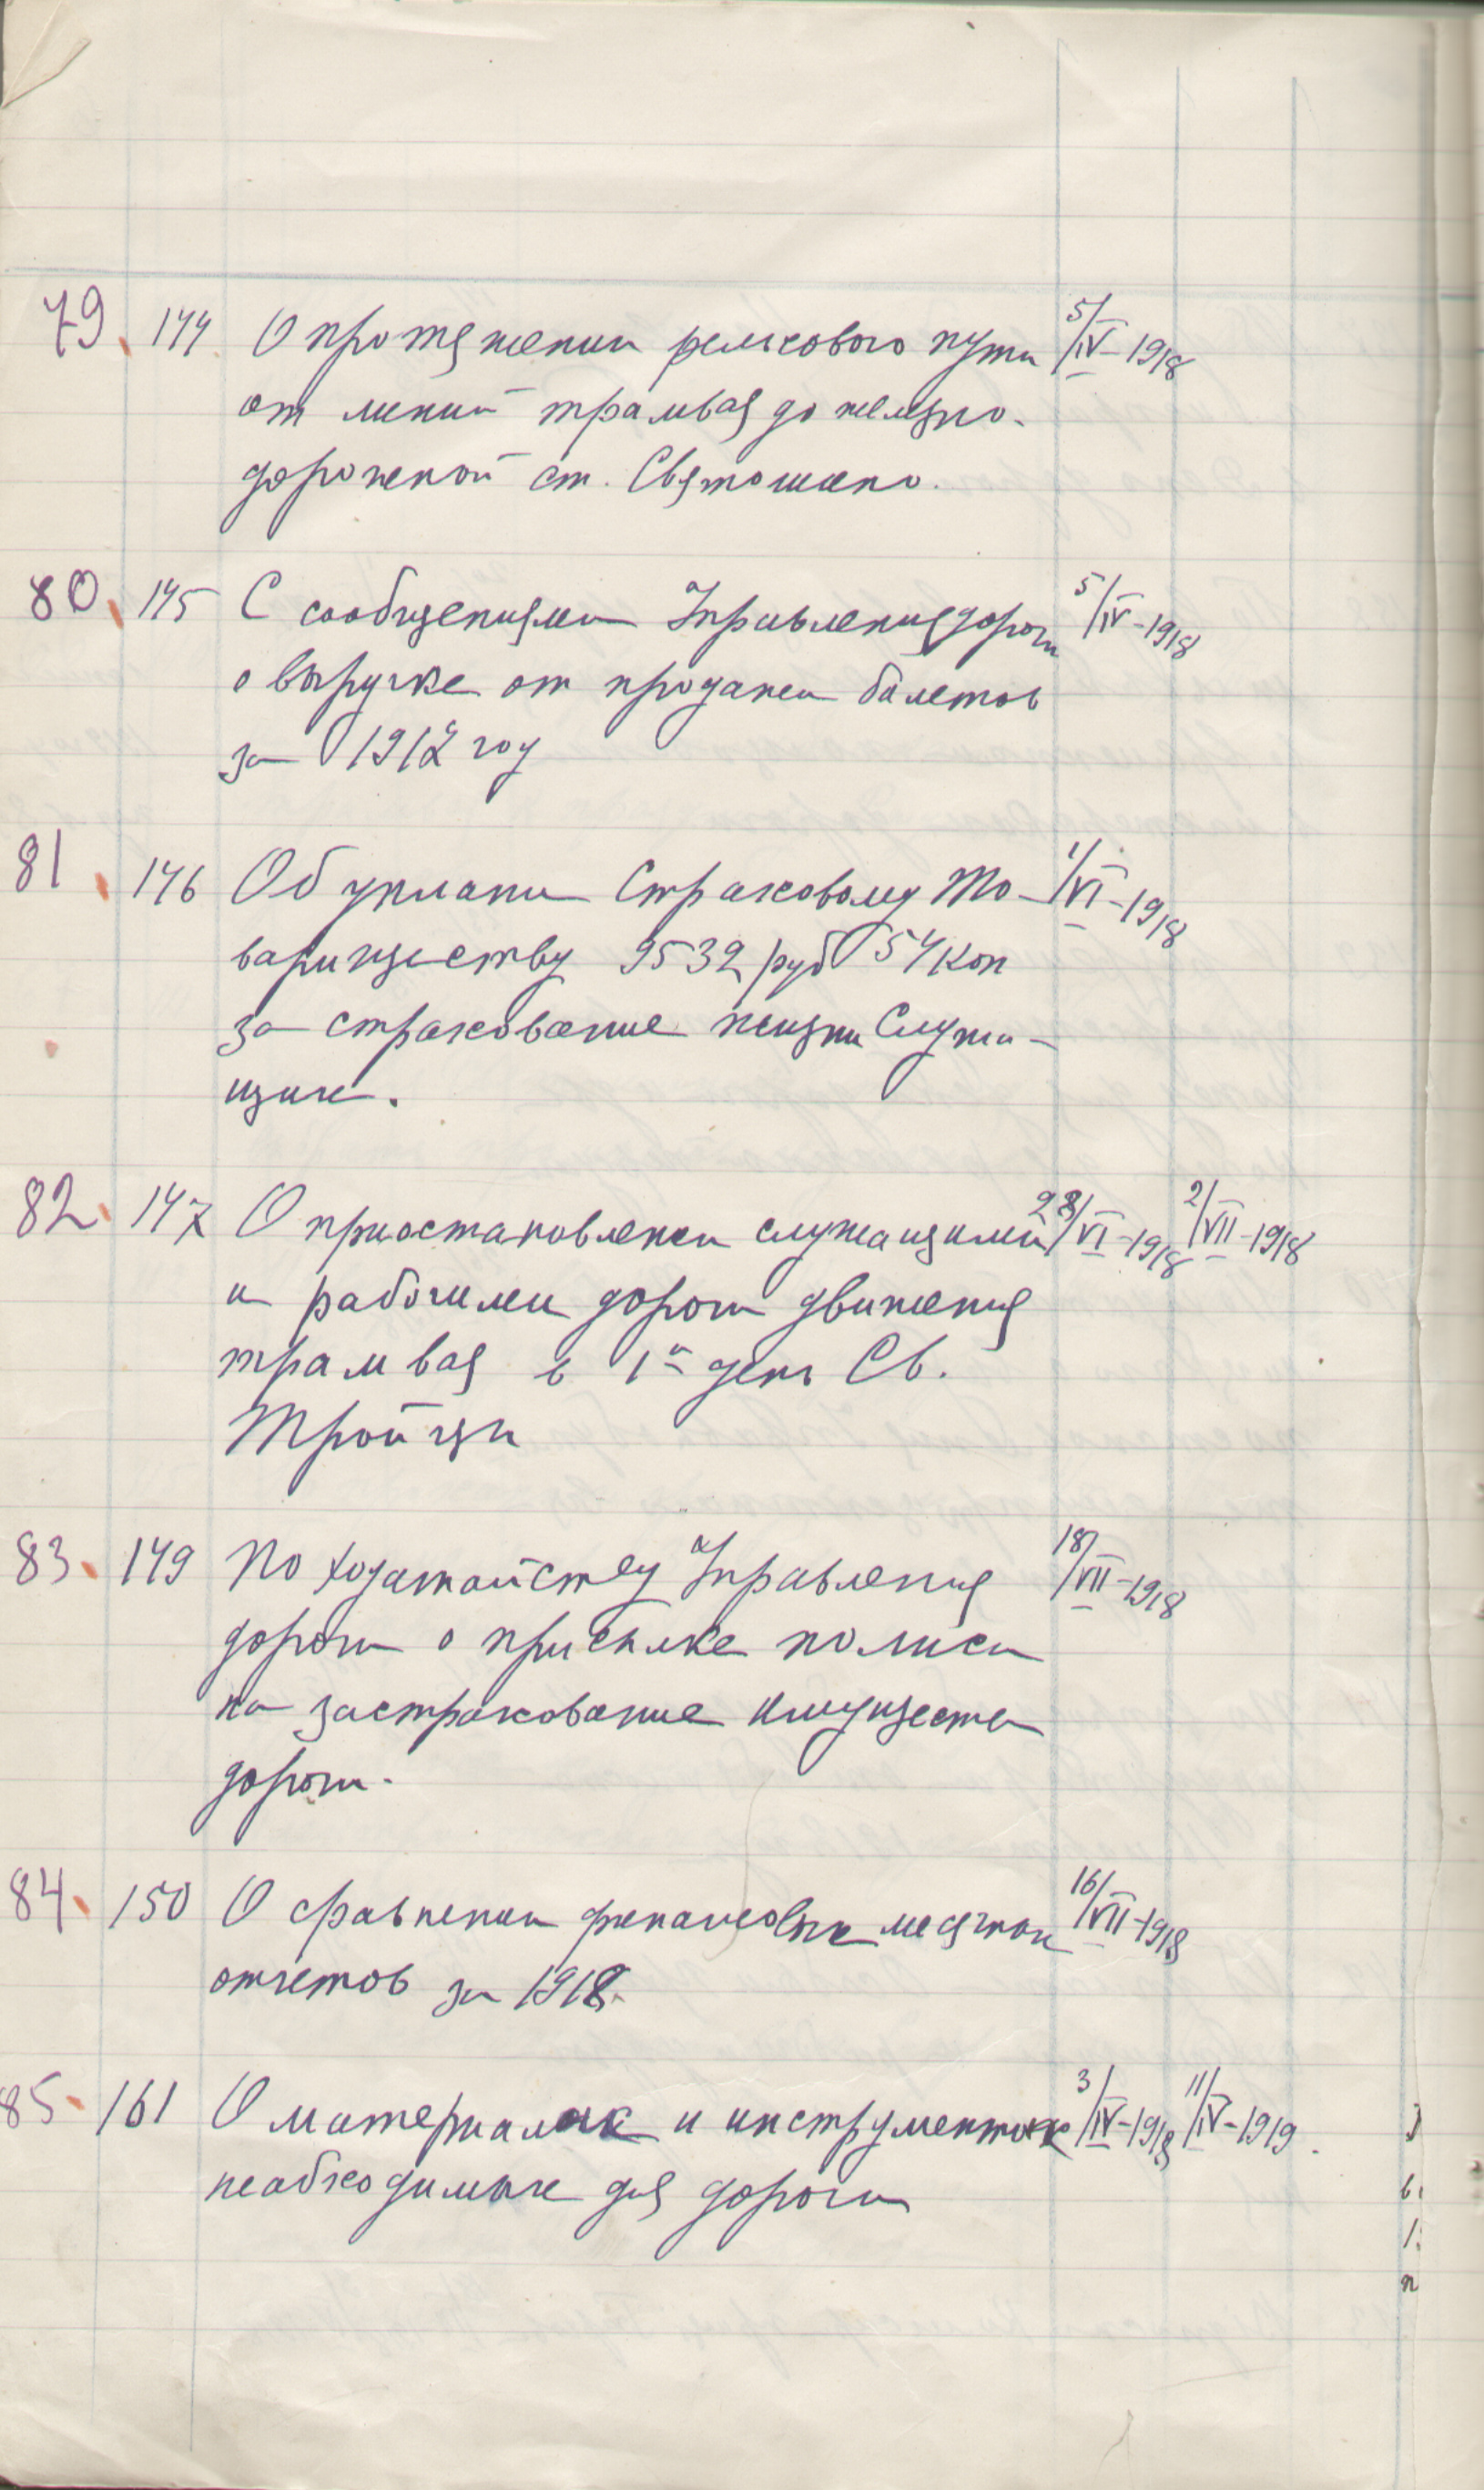 79. 144 О протяжении рельсового пути 5/IV-1918
от линий трамвая до железно-
дорожной ст. Святошино.
80. 145 С сообщениями Управления дороги 5/IV-1918
о выручке от продажи билетов
за 1918 год
81. 146 Об уплати Страховому То- 1/VI-1918
вариществу 9532 руб 54 коп
за страхование жизни Служа-
щих.
82. 147 О приостановлении служащими 28/VI-1918 2/VII-1918
и рабочими дороги движения
трамвая в 1й день Св.
Тройцы
83. 149 По ходатайству Управления 18/VII-1918
дороги о присылке полиса
на застрахование имущества
дороги.
84. 150 О сравнении финансовых 16/VII-1918
отчетов за 1918.
85. 161 О материалах и инструментах 3/IV-1918 11/IV-1919.
необходимых для дороги